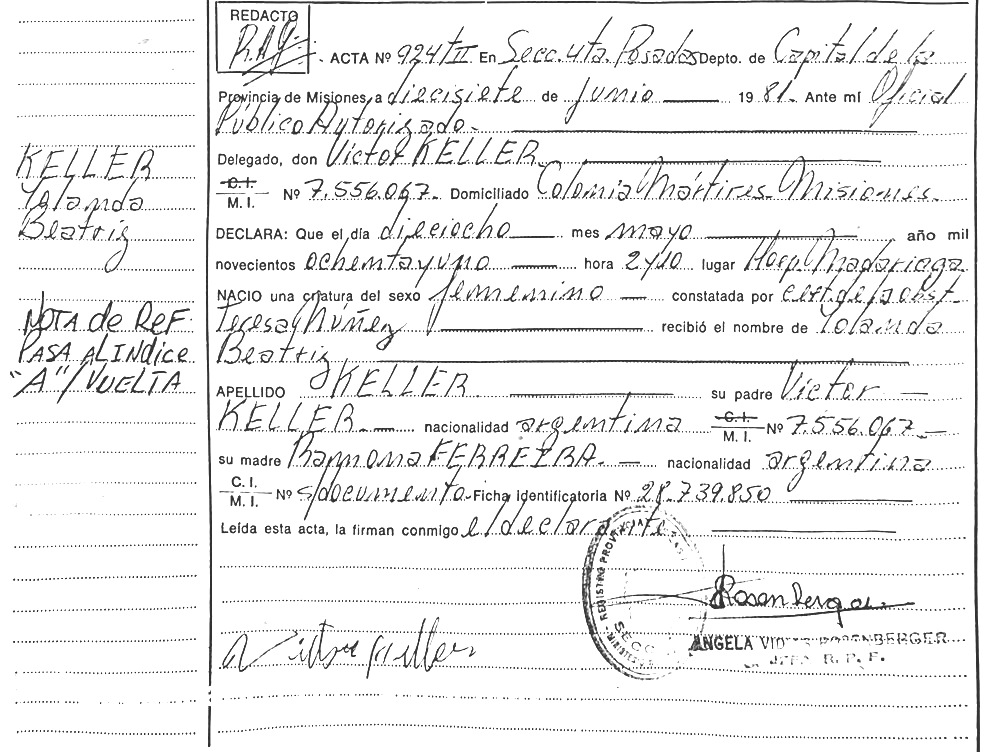 KELLER
Yolanda
Beatriz
NOTA de REF
PASA AL INDICE
"A" / VUELTA
REDACTO
R.A.G.
ACTA Nº 924 TII En Secc. 4ta. Posadas Depto. de Capital de la
Provincia de Misiones a diecisiete de junio 1981. Ante mí Oficial
Público Autorizado.
Delegado, don Victor KELLER
C.I.
M.I. Nº 7.556.067. Domiciliado Colonia Mártires. Misiones.
DECLARA: Que el día dieciocho mes mayo año mil
novecientos ochenta y uno hora 2 y 10 lugar Hosp. Madariaga
NACIO una criatura del sexo femenino constatada por cert. de la obst.
Teresa Núñez recibió el nombre de Yolanda
Beatriz
APELLIDO KELLER su padre Victor
KELLER. nacionalidad argentina C.I.
M.I. Nº 7.556.067.
su madre Rammona FERREIRA. nacionalidad argentina
C.I.
M.I. Nº s/documento. Ficha Identificatoria Nº 28.739.850
Leída esta acta, la firman conmigo el declarante
REGISTRO PROVINCIAL
Rosenberger
ANGELA ROSENBERGER
Victor Keller